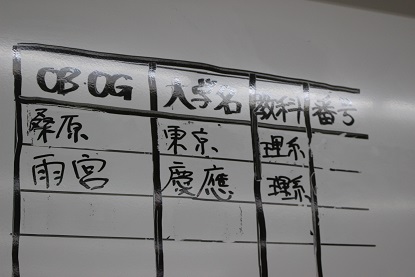 OB・OG 大学名 教科 番号
桑原 東京 理系
雨宮 慶應 理系